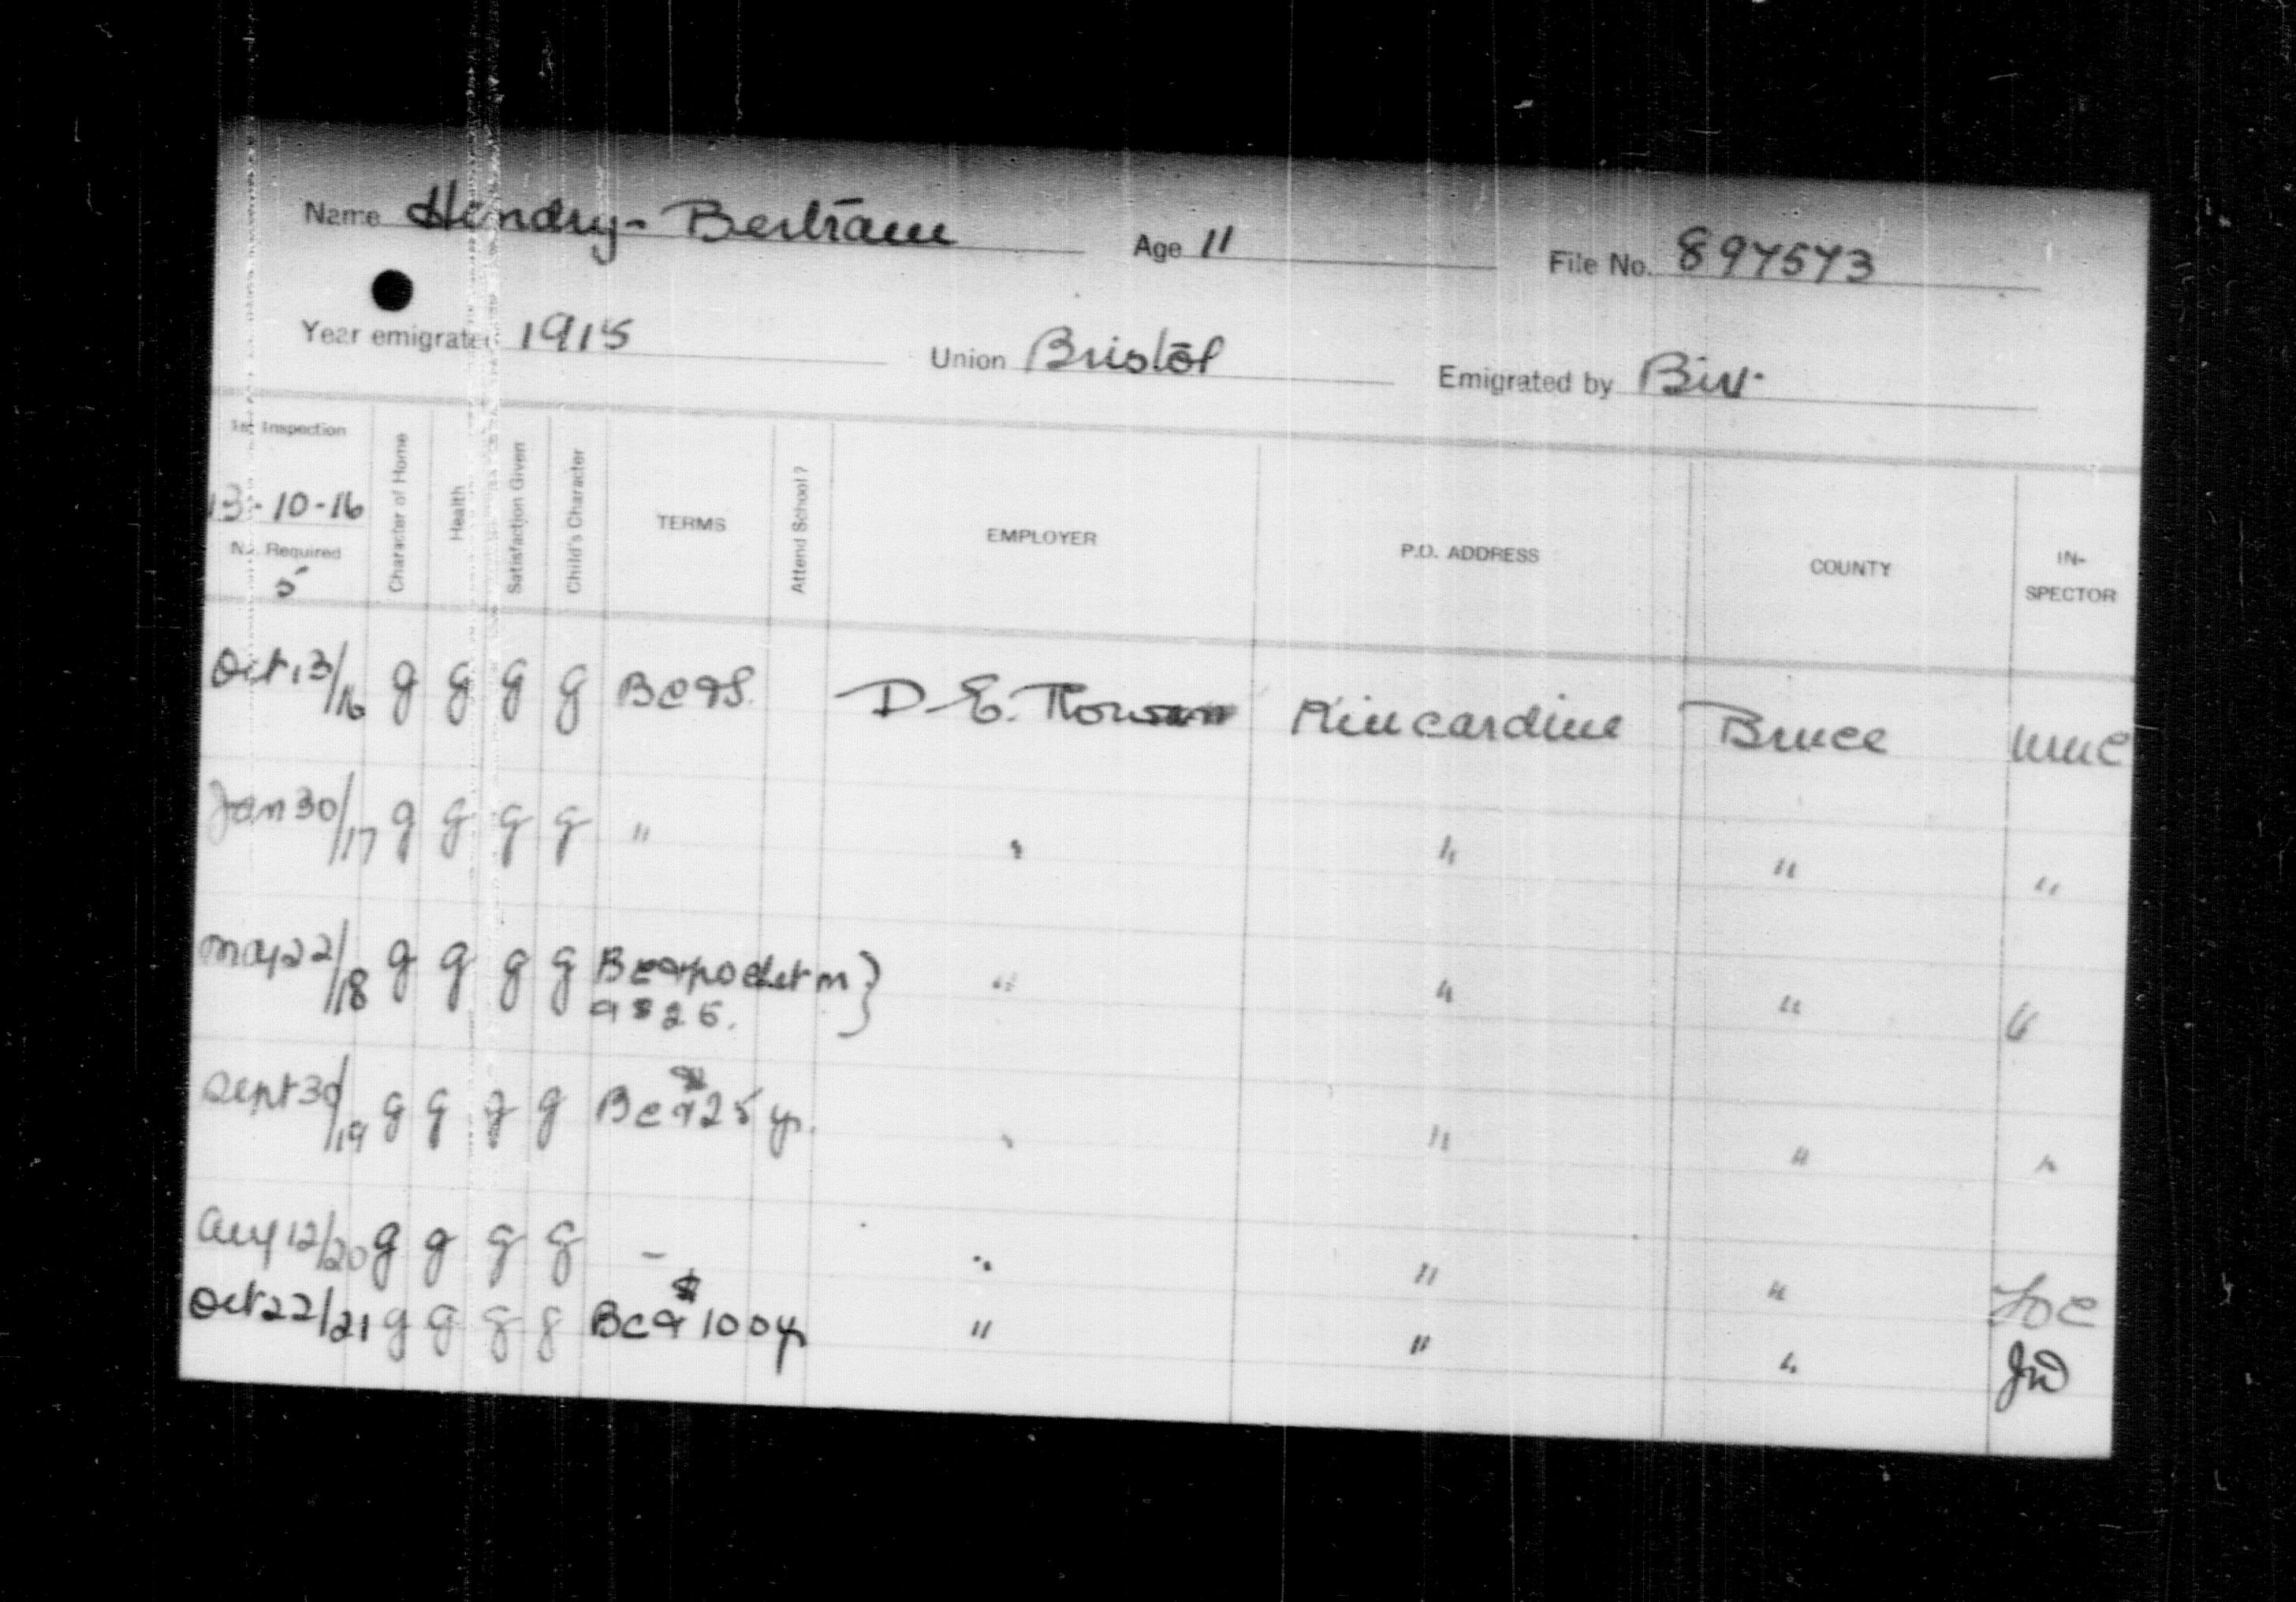 Name Hendry - Bertram Age 11 File No. 897573
Year emigrated 1915 Union Bristol Emigrated by Bir.
1st Inspection
13-10-16
No. Required
5
Character of Home
Health
Satisfaction Given
Child's Character
TERMS
Attend School?
EMPLOYER
P.O. ADDRESS
COUNTY
IN-
SPECTOR
Oct 13/16 g g g g B C & S. D. E. Kincardine Bruce
Jan 30/17 g g g g " " " " "
May 22/18 g g g g B C & pocket m } " " " "
& $25.
Sept 30/19 g g g g B C & $25 yr. " " " "
Aug 12/20 g g g g - " " "
Oct 22/21 g g g g B C & $100 yr " " " JW